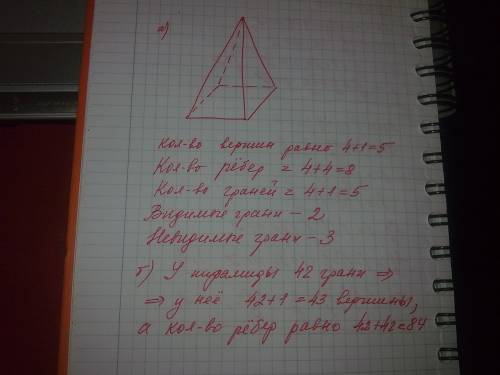 а)
Кол-во вершин равно 4+1=5
Кол-во рёбер = 4+4=8
Кол-во граней = 4+1=5
Видимые грани - 2
Невидимые грани - 3
б) У пирамиды 42 грани ⇒
⇒ у неё 42+1=43 вершины,
а кол-во рёбер равно 42+42=84